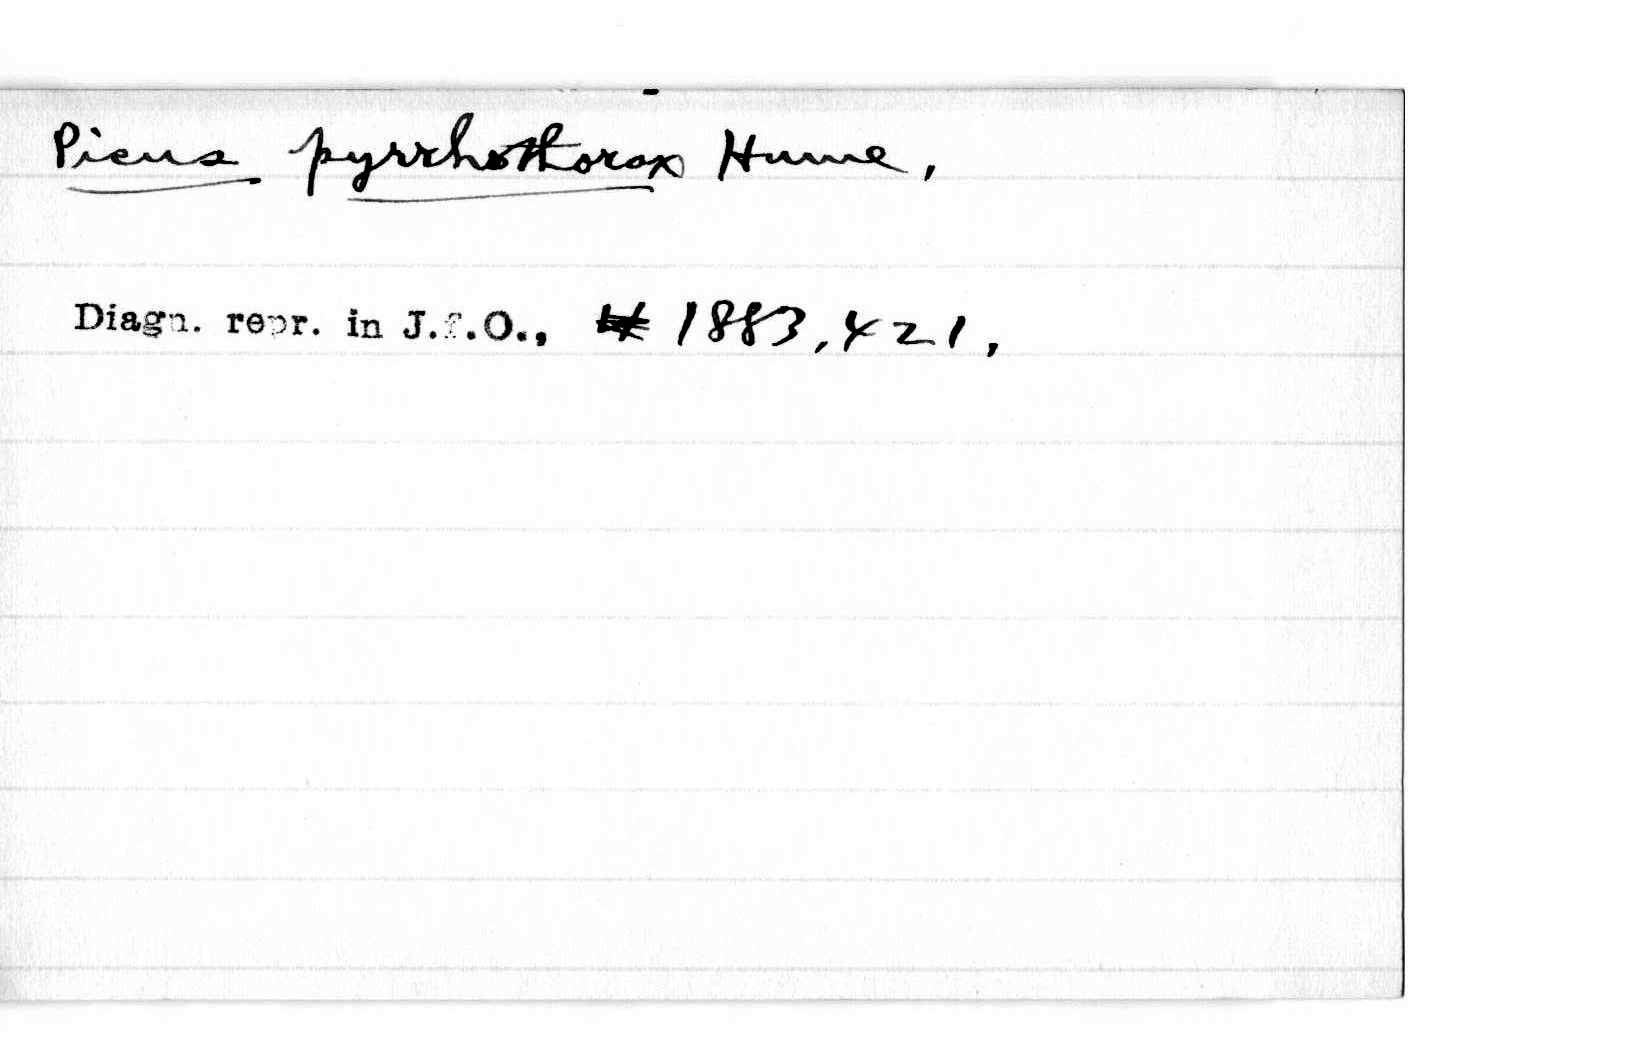 Picus pyrrhothorax Hume,
Diagn. repr. in J.f.O., 1883, 421,